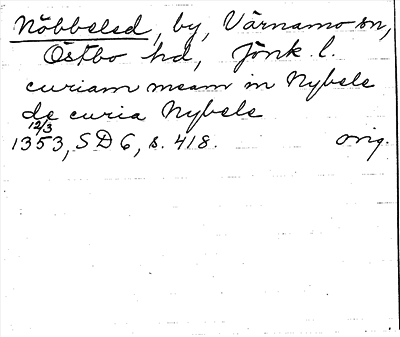 Nöbbelsd, by, Värnamo sn,
Östbo hd, Jönk. l.
curiam meam in Nybele
de curia Nybele
12/3
1353, SD 6, s. 418. orig.